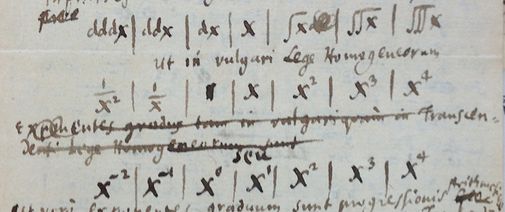 dddx | ddx | dx | x | ∫x | ∫∫x | ∫∫∫x
Ut in vulgari Lege Homogeneorum
1/x² | 1/x | 1 | x | x² | x³ | x⁴
Exponentes gradus tam in vulgari quam in Transcen-
denti Lege Homogeneorum sunt
seu
x⁻² | x⁻¹ | x⁰ | x¹ | x² | x³ | x⁴
exponentes graduum sunt progressionis Arithmeticae